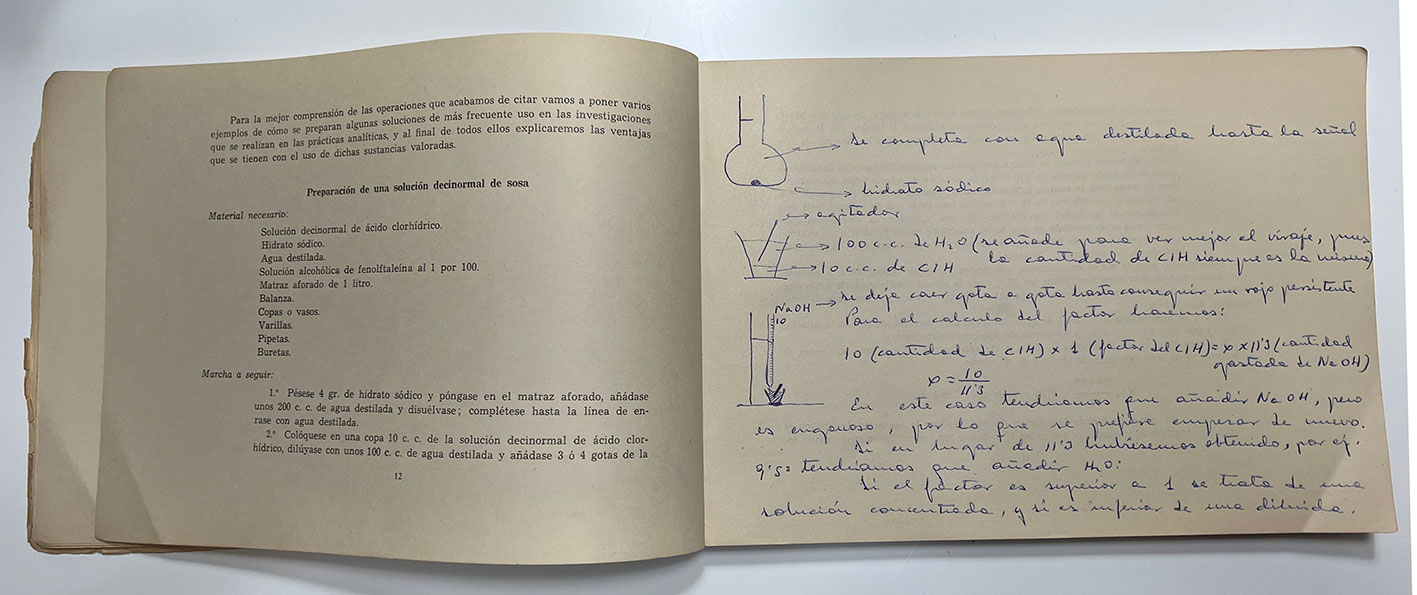 Para la mejor comprensión de las operaciones que acabamos de citar vamos a poner varios
ejemplos de cómo se preparan algunas soluciones de más frecuente uso en las investigaciones
que se realizan en las prácticas analíticas, y al final de todos ellos explicaremos las ventajas
que se tienen con el uso de dichas sustancias valoradas.
Preparación de una solución decinormal de sosa
Material necesario:
Solución decinormal de ácido clorhídrico.
Hidrato sódico.
Agua destilada.
Solución alcohólica de fenolftaleína al 1 por 100.
Matraz aforado de 1 litro.
Balanza.
Copas o vasos.
Varillas.
Pipetas.
Buretas.
Marcha a seguir:
1.º Pésese 4 gr. de hidrato sódico y póngase en el matraz aforado, añádase
unos 200 c. c. de agua destilada y disuélvase; complétese hasta la línea de en-
rase con agua destilada.
2.º Colóquese en una copa 10 c. c. de la solución decinormal de ácido clor-
hídrico, dilúyase con unos 100 c. c. de agua destilada y añádase 3 ó 4 gotas de la
12
se completa con agua destilada hasta la señal
hidrato sódico
agitador
100 c.c. de H₂O (se añade para ver mejor el viraje, pues
la cantidad de ClH siempre es la misma)
10 c.c. de ClH
NaOH → se deja caer gota a gota hasta conseguir un rojo persistente
10
Para el calculo del factor haremos:
10 (cantidad de ClH) x 1 (factor del ClH) = x x 11'3 (cantidad
gastada de NaOH)
x = 10/11'3
En este caso tendríamos que añadir NaOH, pero
es engorroso, por lo que se prefiere empezar de nuevo.
Si en lugar de 11'3 hubiésemos obtenido, por ej.
9'5 tendríamos que añadir H₂O.
Si el factor es superior a 1 se trata de una
solución concentrada, y si es inferior de una diluida.